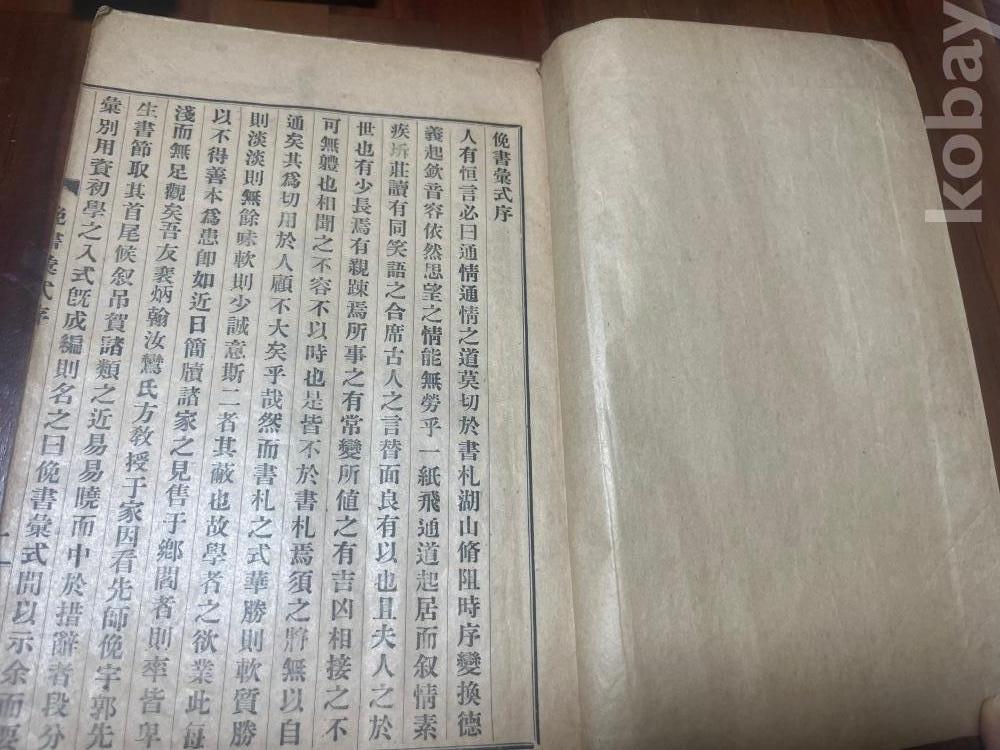 俛書彙式序
人有恒言必曰通情通情之道莫切於書札湖山脩阻時序變換德
義起欽音容依然思望之情能無勞乎一紙飛通道起居而叙情素
疾訴莊讀有同笑語之合席古人之言替面良有以也且夫人之於
世也有少長焉有親踈焉所事之有常變所値之有吉凶相接之不
可無軆也相聞之不容不以時也是皆不於書札焉須之將無以自
通矣其爲切用於人顧不大矣乎哉然而書札之式華勝則軟質勝
則淡淡則無餘味軟則少誠意斯二者其蔽也故學者之欲業此每
以不得善本爲患卽如近日簡牘諸家之見售于鄕閣者則率皆卑
淺而無足觀矣吾友裵炳翰汝鸞氏方敎授于家因看先師俛宇郭先
生書節取其首尾候叙吊賀諸類之近易易曉而中於措辭者段分
彙別用資初學之入式旣成編則名之曰俛書彙式間以示余而要
俛書彙式序
一
kobay